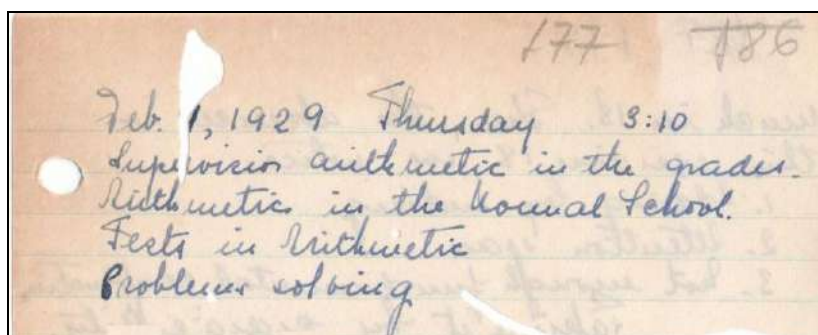 177 186
Feb. 1, 1929 Thursday 3:10
Supervision arithmetic in the grades.
Arithmetic in the Normal School.
Tests in Arithmetic
Problems solving